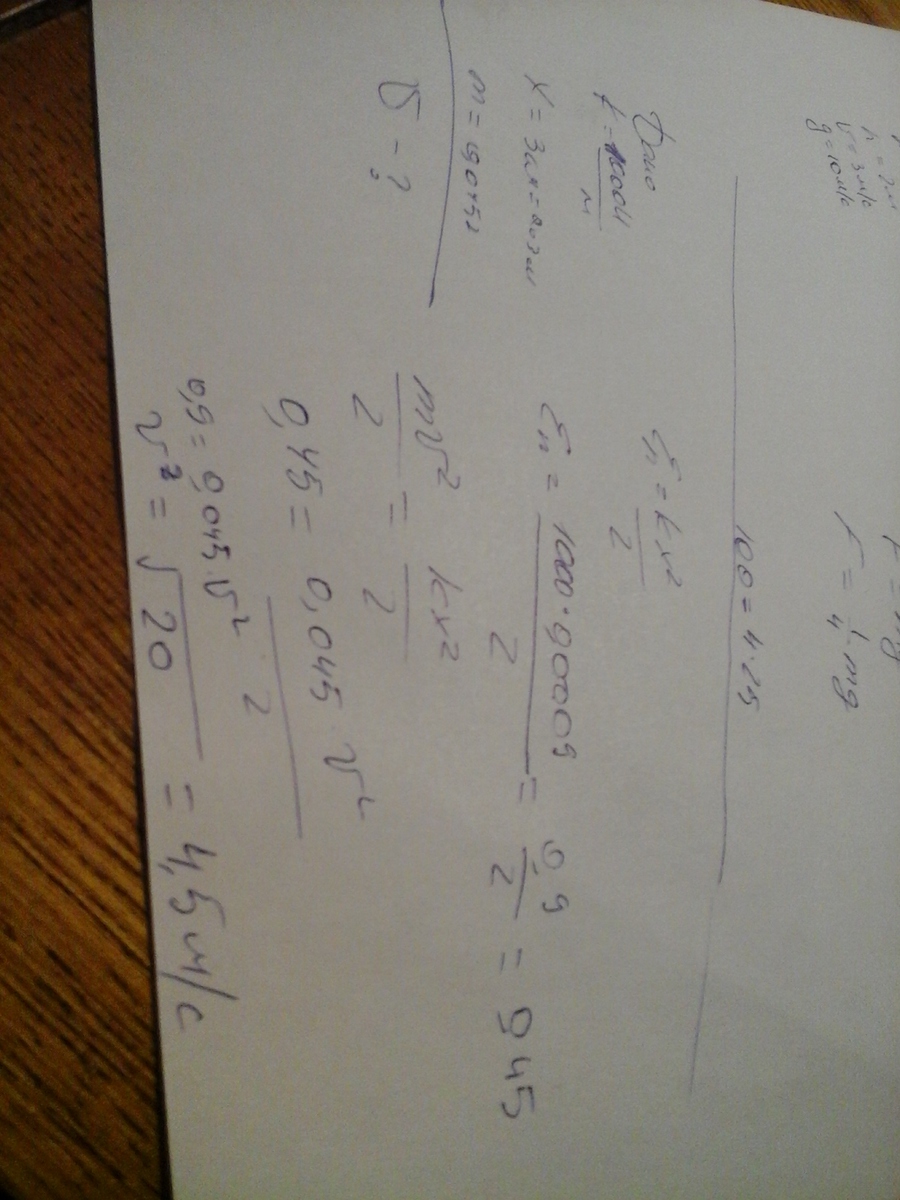 h = 2м
v = 3 м/с
g = 10 м/с
F = mg
F = 1/4 mg
100 = 4·25
Дано
k = 1000 Н/м
x = 3 см = 0,03 м
m = 0,045
v - ?
Eп = kx²/2
Eп = 1000·0,0009/2 = 0,9/2 = 0,45
mv²/2 = kx²/2
0,45 = 0,045·v²/2
0,9 = 0,045·v²
v² = √20 = 4,5 м/с